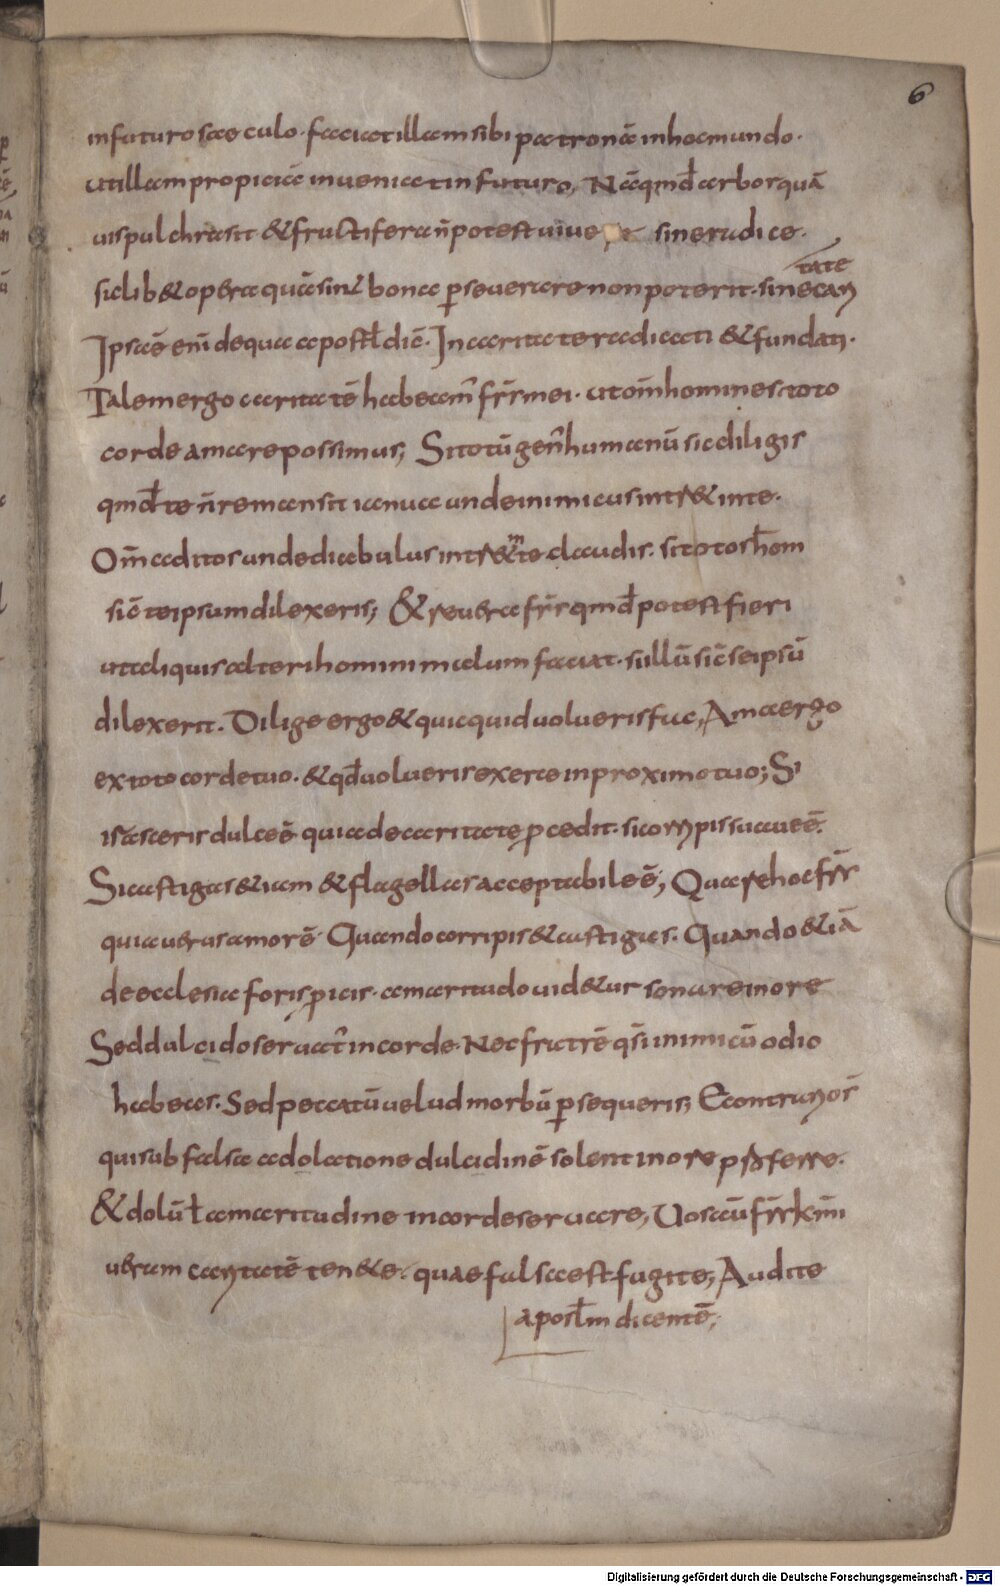 6
in futuro saeculo. faciat illam sibi patronā in hoc mundo.
ut illam propiciā inueniat in futuro, Nā qmđ arbor quā
uis pulchra sit & fructifera n̄ potest uiuere sine radice.
sic lib& opera quāsint bona ꝑseuerare non poterit. sine cari
tate
Ipsa ē enī de qua apostl dic̄. In caritate radicati & fundati.
Talem ergo caritatē habeam̄ fr̄s mei. ut om̄ homines toto
corde amare possimus; Si totū gen̄ humanū sic diligis
qmđ te n̄ remansit ianua unde inimicus intr& in te.
Om̄ aditos unde diabulus intr& in te claudis. si totos hom
sic̄ te ipsum dilexeris; & reuera fr̄s qmđ potest fieri
ut aliquis alteri homini malum faciat. si illū sic̄ se ipsū
dilexerit. Dilige ergo & quicquid uolueris fac, Ama ergo
ex toto corde tuo. & qđ uolueris exerce in proximo tuo; Si
irasceris dulce ē quia de caritate ꝓcedit. si corripis suaue ē.
Si castigas &iam & flagellas acceptabile ē; Quare hoc fr̄s
quia uerus amor ē Quando corripis & castigas. Quando &iā
de ecclesia foris ꝓicis. amaritudo uid&ur sonare in ore
Sed dulcido seruat̄ in corde. Nec fratrē qsi inimicū odio
habeas. Sed peccatū uelud morbū ꝑsequeris, Econtrarios
qui sub falsa adolatione dulcidinē solent in ore pferre.
& dolū ł amaritudine in corde seruare, Uos aū fr̄s kmi
ueram caritatē ten&e. quae falsa est fugite; Audite
apostlm dicentē;
Digitalisierung gefördert durch die Deutsche Forschungsgemeinschaft - DFG